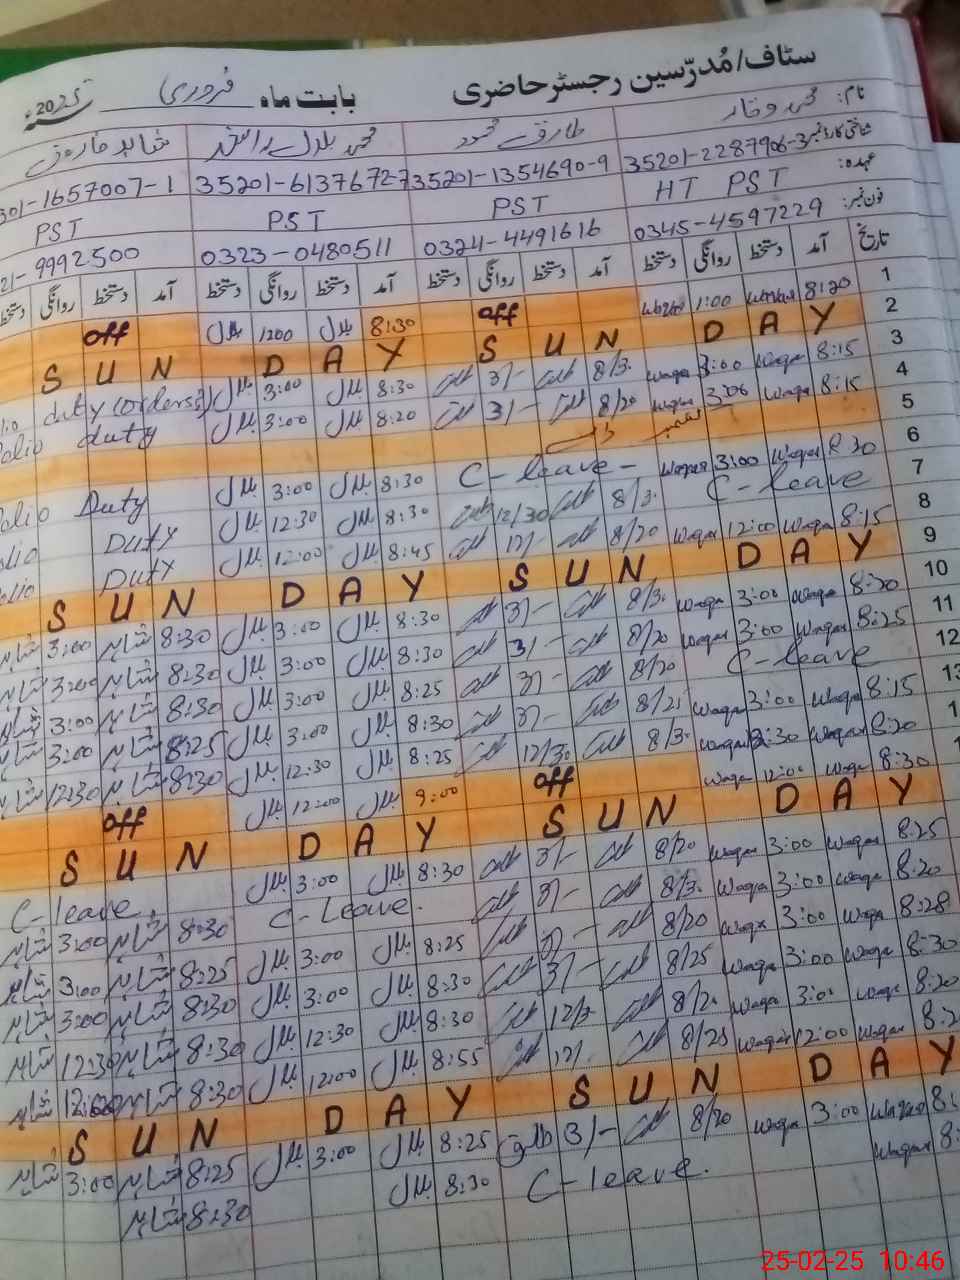 سٹاف/مُدرّسین رجسٹر حاضری بابت ماہ فروری سنہ 2025
نام: محمد وقار طارق محمود محمد بلال راشد شاہد فاروق
شناختی کارڈ نمبر 35201-2287906-3 35201-1354690-9 35201-6137672-7 301-1657007-1
عہدہ: HT PST PST PST PST
فون نمبر: 0345-4597229 0324-4491616 0323-0480511 21-9992500
تاریخ آمد دستخط روانگی دستخط آمد دستخط روانگی دستخط آمد دستخط روانگی دستخط آمد دستخط روانگی دستخط
1 8:20 Waqar 1:00 Waqar off 8:30 بلال 1200 بلال off
2 S U N D A Y S U N D A Y
3 8:15 Waqar 3:00 Waqar 8/3. 3/- 8:30 بلال 3:00 بلال duty (orders)
4 8:15 Waqar 3:00 Waqar 8/20 3/- 8:20 بلال 3:00 بلال duty
5
6 8:20 Waqar 3:00 Waqar C-leave- 8:30 بلال 3:00 بلال Duty
7 C-leave 8/3. 12/30 8:30 بلال 12:30 بلال Duty
8 8:15 Waqar 12:00 Waqar 8/20 12/- 8:45 بلال 12:00 بلال Duty
9 S U N D A Y S U N D A Y
10 8:20 Waqar 3:00 Waqar 8/3. 3/- 8:30 بلال 3:00 بلال 8:30 شاہد 3:00 شاہد
11 8:25 Waqar 3:00 Waqar 8/20 3/- 8:30 بلال 3:00 بلال 8:30 شاہد 3:00 شاہد
12 C-leave 8/20 3/- 8:25 بلال 3:00 بلال 8:30 شاہد 3:00 شاہد
13 8:15 Waqar 3:00 Waqar 8/25 3/- 8:30 بلال 3:00 بلال 8:25 شاہد 3:00 شاہد
1 8:20 Waqar Waqar 8/3. 12/30 8:25 بلال 12:30 بلال 8:30 شاہد 12:30 شاہد
1 8:30 Waqar 12:00 Waqar off 9:00 بلال 12:00 بلال off
S U N D A Y S U N D A Y
8:25 Waqar 3:00 Waqar 8/20 3/- 8:30 بلال 3:00 بلال C-leave.
8:20 Waqar 3:00 Waqar 8/3. 3/- C-Leave. 8:30 شاہد 3:00 شاہد
8:28 Waqar 3:00 Waqar 8/20 3/- 8:25 بلال 3:00 بلال 8:25 شاہد 3:00 شاہد
8:30 Waqar 3:00 Waqar 8/25 3/- 8:30 بلال 3:00 بلال 8:30 شاہد 3:00 شاہد
8:20 Waqar 3:00 Waqar 12/3 8:30 بلال 12:30 بلال 8:30 شاہد 12:30 شاہد
Waqar 12:00 Waqar 8/25 12/- 8:55 بلال 12:00 بلال 8:30 شاہد 12:00 شاہد
S U N D A Y S U N D A Y
Waqar 3:00 Waqar 8/20 3/- 8:25 بلال 3:00 بلال 8:25 شاہد 3:00 شاہد
Waqar C-leave. 8:30 بلال 8:30 شاہد
25-02-25 10:46